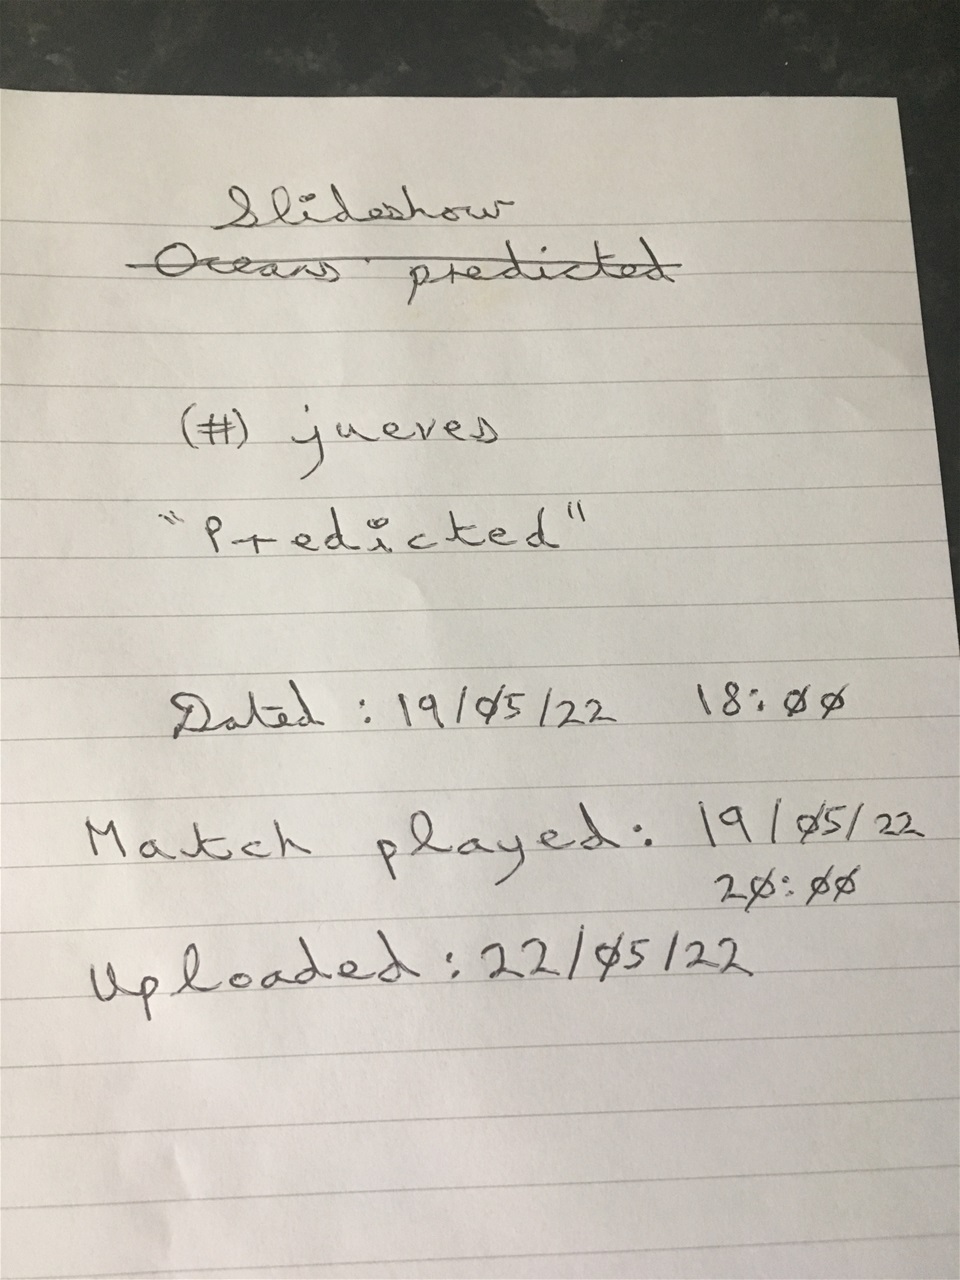 Slideshow
Oceans predicted
(#) jueves
"Predicted"
Dated : 19/05/22 18:00
Match played: 19/05/22
20:00
Uploaded : 22/05/22